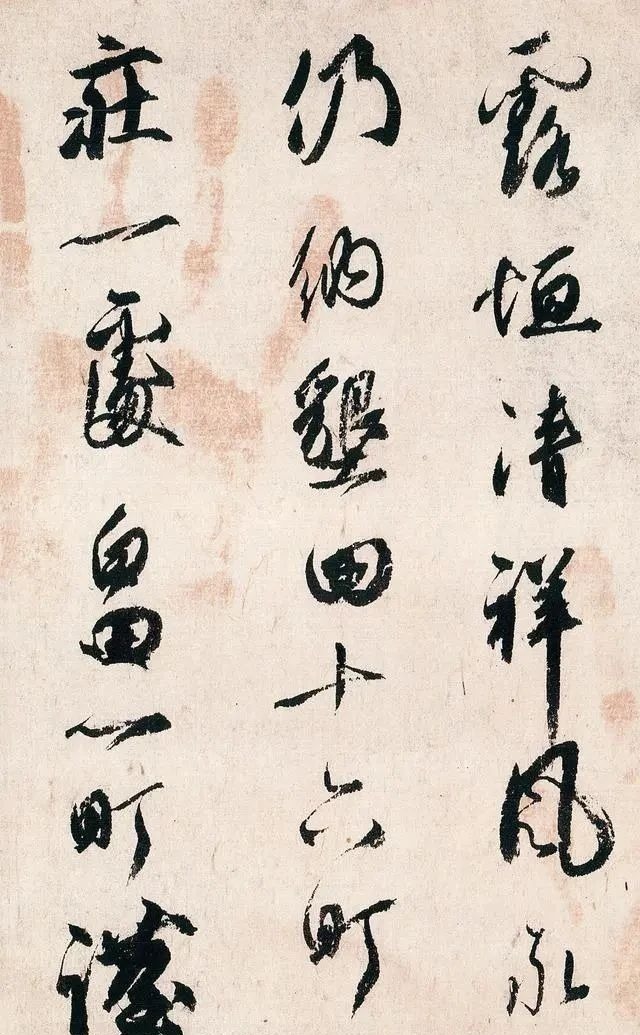 露恒清祥風永
仍納墾田十六町
荘一處畠一町謹